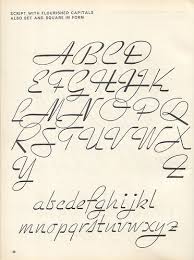 SCRIPT WITH FLOURISHED CAPITALS
ALSO SET AND SQUARE IN FORM
ABCD
EFGHIJK
LMNOPQ
RSTUVWX
Y
abcdefghijkl
mnopqrstuvwxyz